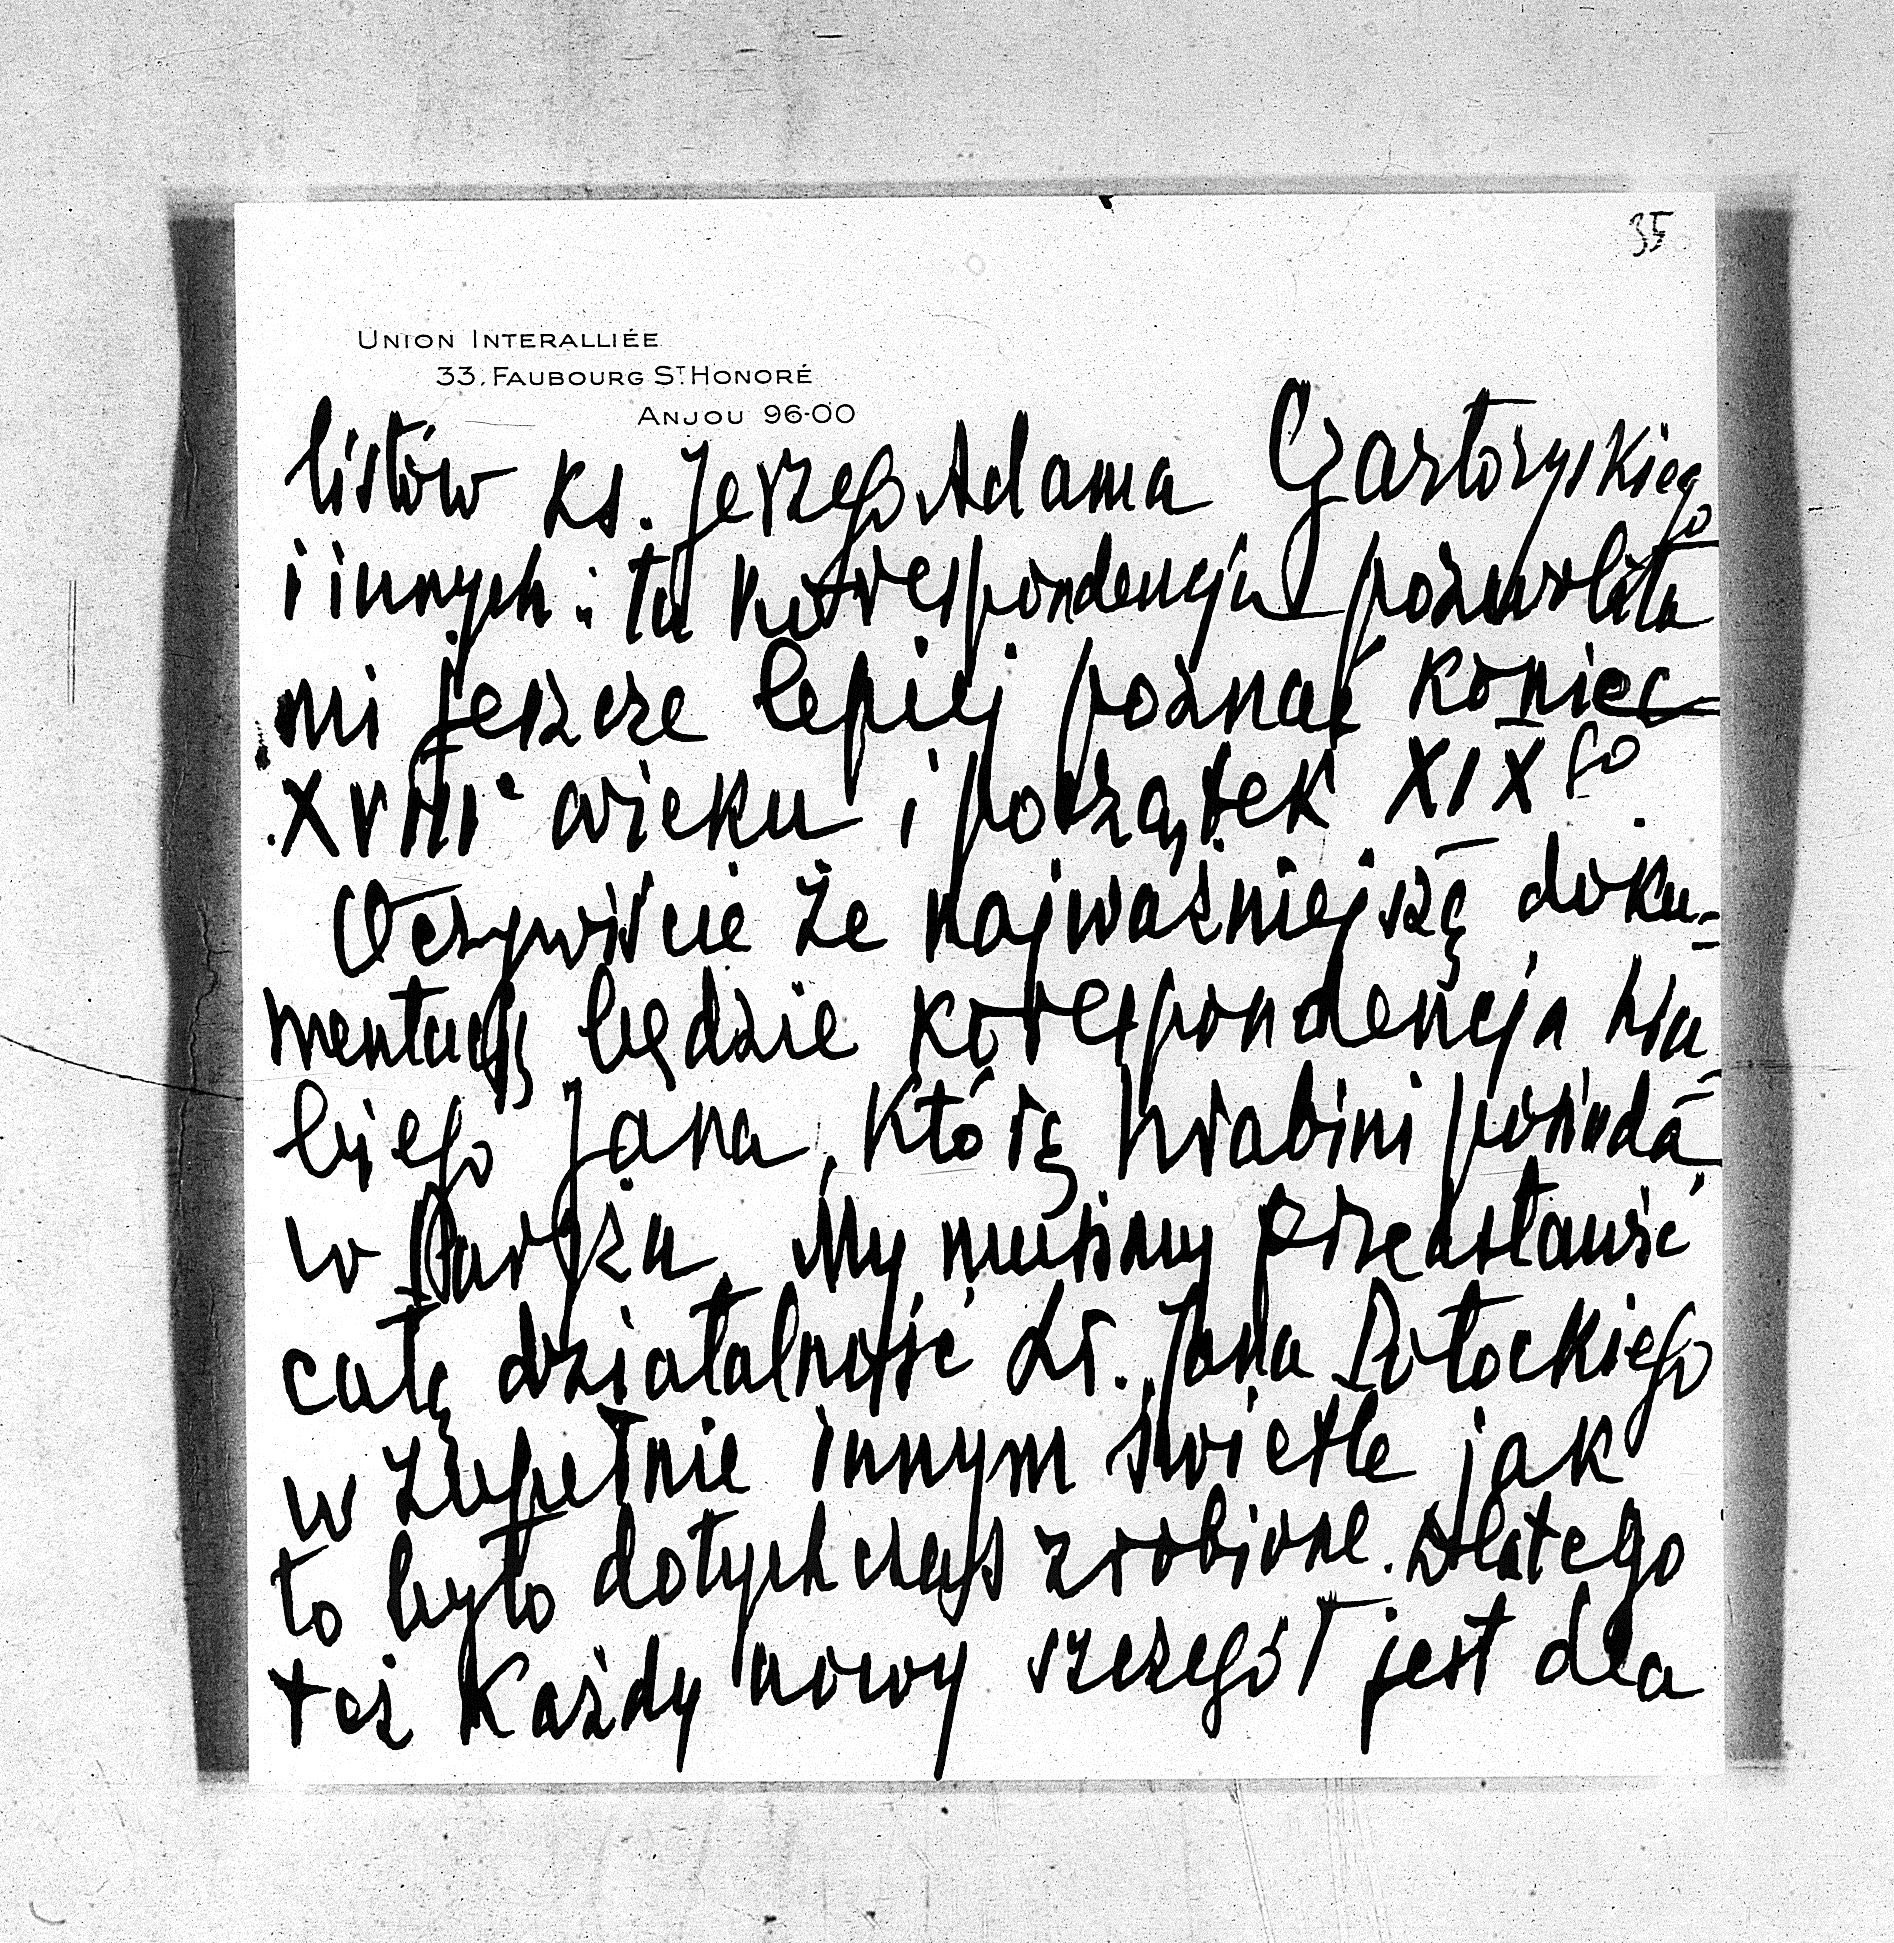 35
UNION INTERALLIÉE
33, FAUBOURG ST. HONORÉ
ANJOU 96-00
listów ks. Jerzego Adama Czartoryskiego
i innych: ta korrespondencja pozwoliła
mi jeszcze lepiej poznać koniec
XVIII wieku i początek XIXgo.
Oczywiście że najważniejszą doku-
mentacją będzie korespondencja hra
biego Jana, którą hrabini posiada
w Paryżu. My musimy przedstawić
całą działalność hr. Jana Potockiego
w zupełnie innym świetle jak
to było dotychczas zrobione. Dlatego
też każdy nowy szczegół jest dla